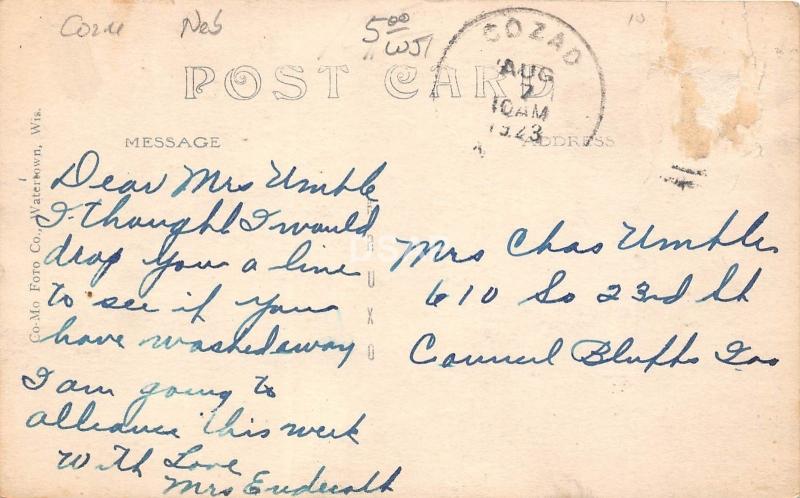 Neb
5.00
WJ
10
POST CARD
COZAD
AUG
7
10AM
1923
MESSAGE
ADDRESS
Co-Mo Foto Co., Watertown, Wis.
Dear Mrs Umble
I thought I would
drop you a line
to see if you
have washed away
I am going to
alliance this week
With Love
Mrs
KRUXO
Mrs Chas Umble
610 So 23rd St
Council Bluffs Ioa